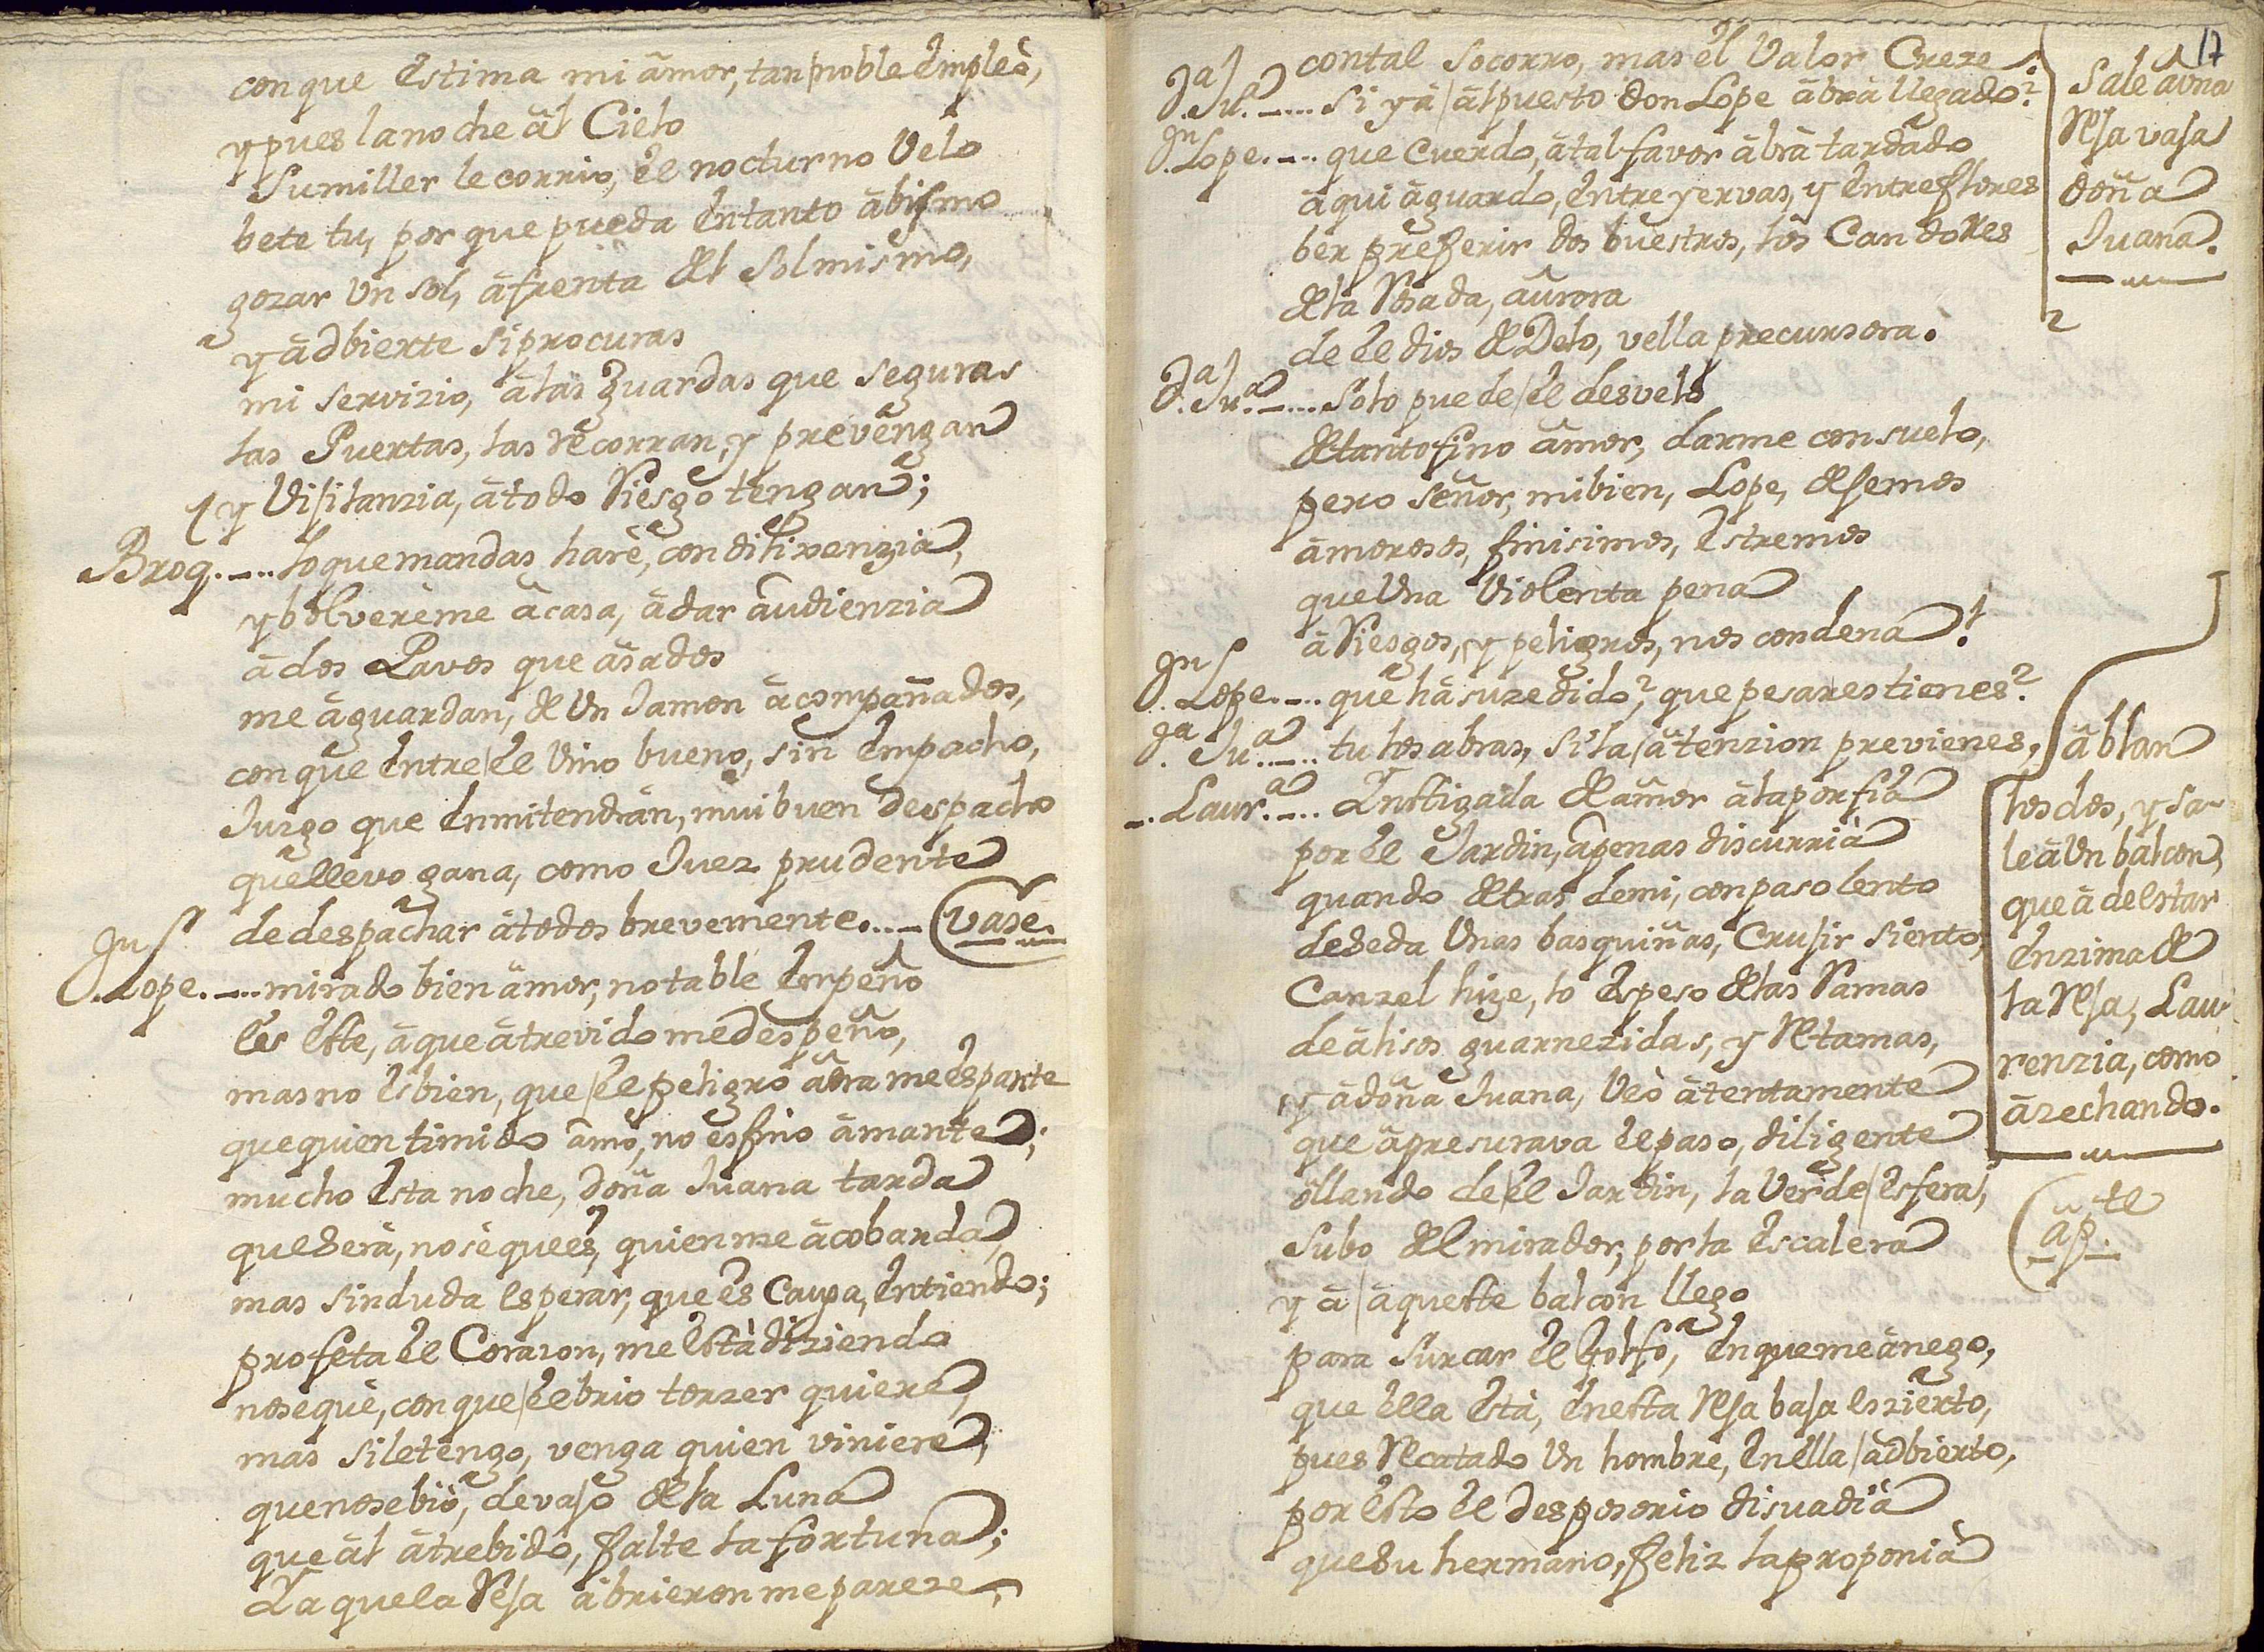 con que estima mi ámor, tan noble émpleo,
y pues la noche ál Cielo
Sumiller le corrio, él nocturno Velo
bete tu, por que pueda éntanto ábismo
gozar Un sol, áfrenta del Sol mismo,
y ádbierte si procuras
mi servizio, álas guardas que seguras
las Puertas, las recorran, y prevéngan
y Vijilanzia, átodo Riesgo tengan;
Broq. ---- lo que mandas harè, con dilixenzia,
y bolverème ácasa, ádar áudienzia
ádos Pavos que ásados
me águardan, de Un Jamon ácompañados,
con que éntre él Vino bueno, sin émpacho,
Juzgo que énmitendràn, mui buen despacho
que llevo gana, como Juez prudente
de despachar átodos brevemente.---- (vase.
D.n Lope.---- mirado bien ámor, notable émpeño
és éste, áque átrevido me despeño,
mas no és bien, que él peligro áora me éspante
que quien timido ámó, no es fino ámante;
mucho ésta noche, doña Juana tarda
que Serà, no sè que és, quien me ácobarda,
mas sin duda esperar, que és Causa, éntiendo;
profeta él Corazon, me està diziendo
no se què, con que él brio torzer quiere,
mas si le tengo, venga quien viniere,
que no se biò, devajo de la Luna
que ál átrebido, falte la fortuna;
Ya que la Reja ábrieron me pareze,
17
con tal Socorro, mas él Valor Creze.
D.a Ju.a---- si yà ál puesto don Lope ábrà llegado?
D.n Lope.---- que Cuerdo, átal favor ábrà tardado
áqui águardo, éntre yervas, y éntre flores
ber preferir dos buestros, los Candores
de la Rosada, áurora
de él dios de Delo, vella precursora.
D.a Ju.a---- Solo puede él desvelo
de tanto fino ámor, darme consuelo,
pero señor, mi bien, Lope, dejemos
ámorosos, finisimos, éstremos
que Una Violenta pena
á Riesgos, y peligros, nos condena!
D.n Lope.---- què hà suzedido? que pesares tienes?
D.a Ju.a---- tu los abras, si la átenzion previenes,
Laur.a---- Ynstigada de ámor álaporfia
por él Jardin, ápenas discurria
quando detras de mi, con paso lento
de Seda Unas basquiñas, Crujir siento,
Canzel hize, lo éspeso de las Ramas
de álisos guarnezidas, y Retamas,
y ádoña Juana, Veò átentamente
que ápresurava él paso, diligente
óllando de él Jardin, la Verde ésfera,
Subo del mirador, por la éscalera
y á áqueste balcon llego
para surcar él Golfo, én que me ánego,
que élla éstà, énesta Reja baja es zierto,
pues Recatado Un hombre, én élla ádbierto,
por ésto él desposorio disuadia
que Su hermano, feliz la proponia
Sale áuna
Reja vaja
doña
Juana.
áblan
los dos, y sa-
le á Un balcon,
que á de éstar
énzima de
la Reja, Lau-
renzia, como
ázechando.
(ap.te